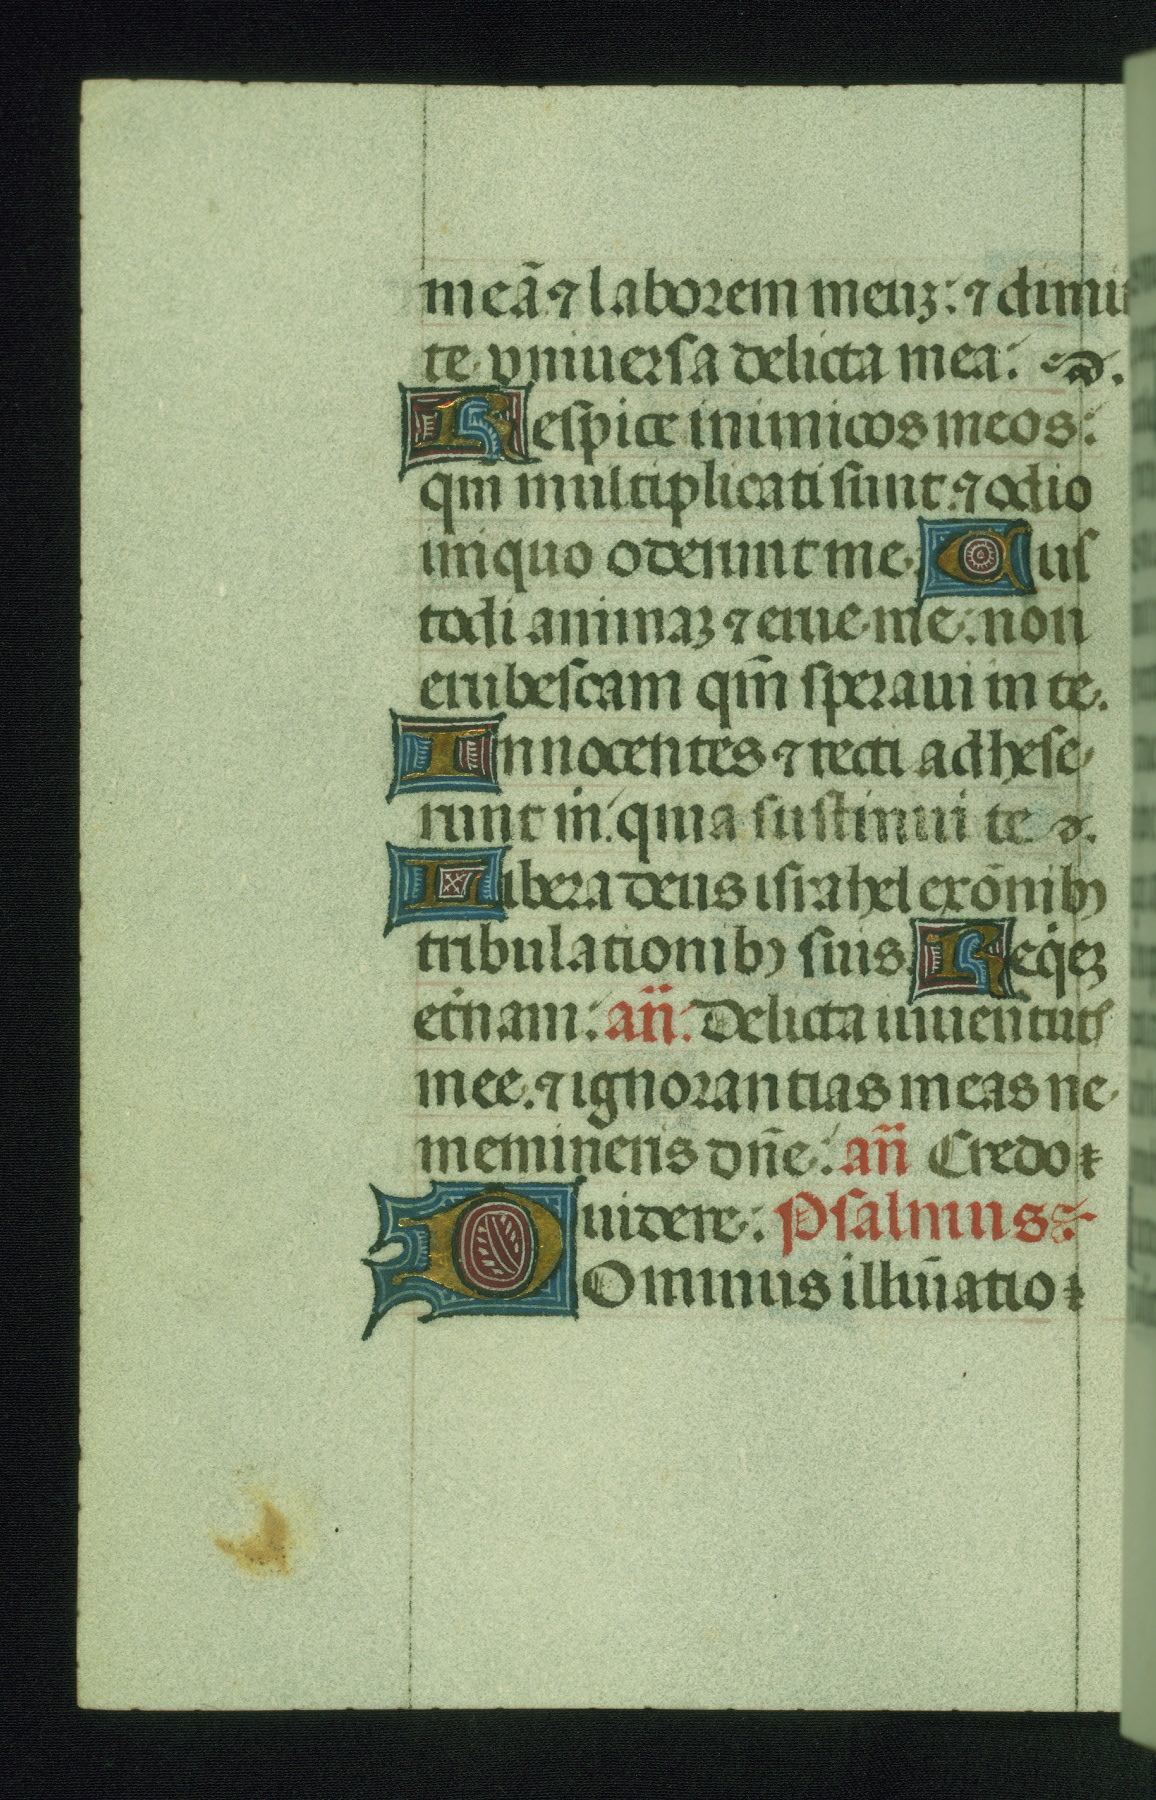 meã ⁊ laborem meuꝫ: ⁊ dimit
te vniuersa delicta mea:
Respice inimicos meos:
qm multiplicati sunt: ⁊ odio
iniquo oderunt me. Cus
todi animaꝫ ⁊ erue me: non
erubescam qm̃ speraui in te.
Innocentes ⁊ recti adhese
runt m̊: quia sustinui te
Libera deus israhel ex õnibꝰ
tribulationibꝰ suis. Reqͥeꝫ
et̾nam: añ: Delicta iuuentut
mee. ⁊ ignorantias meas ne
memineris dñe: añ Credo
uidere: Psalmus:
Dominus illuñatio